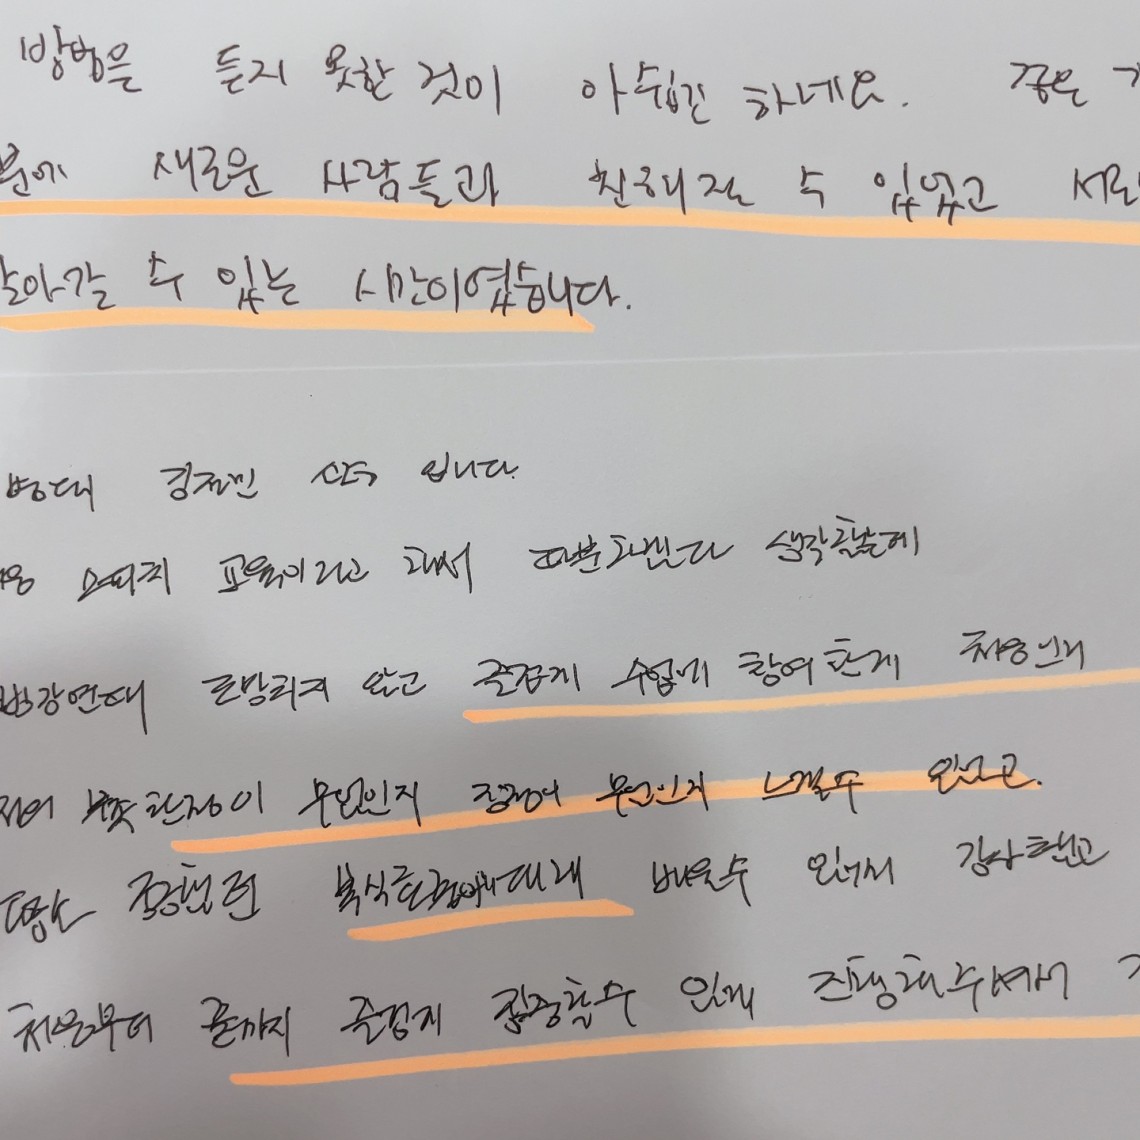 방법을 듣지 못한 것이 아쉽긴 하네요. 좋은
분에 새로운 사람들과 친해질 수 있었고 서로
알아갈 수 있는 시간이였습니다.
입니다.
스피치 교육이라고 해서 따분하겠다 생각했는데
강연때 졸맘되지 않고 즐겁게 수업에 참여한게 처음인데
단점이 무엇인지 장점이 무언인지 느낄수 있었고.
복식호흡에대해 배울수 있어서 감사했고
처음부터 끝까지 즐겁게 집중할수 있게 진행해주셔서